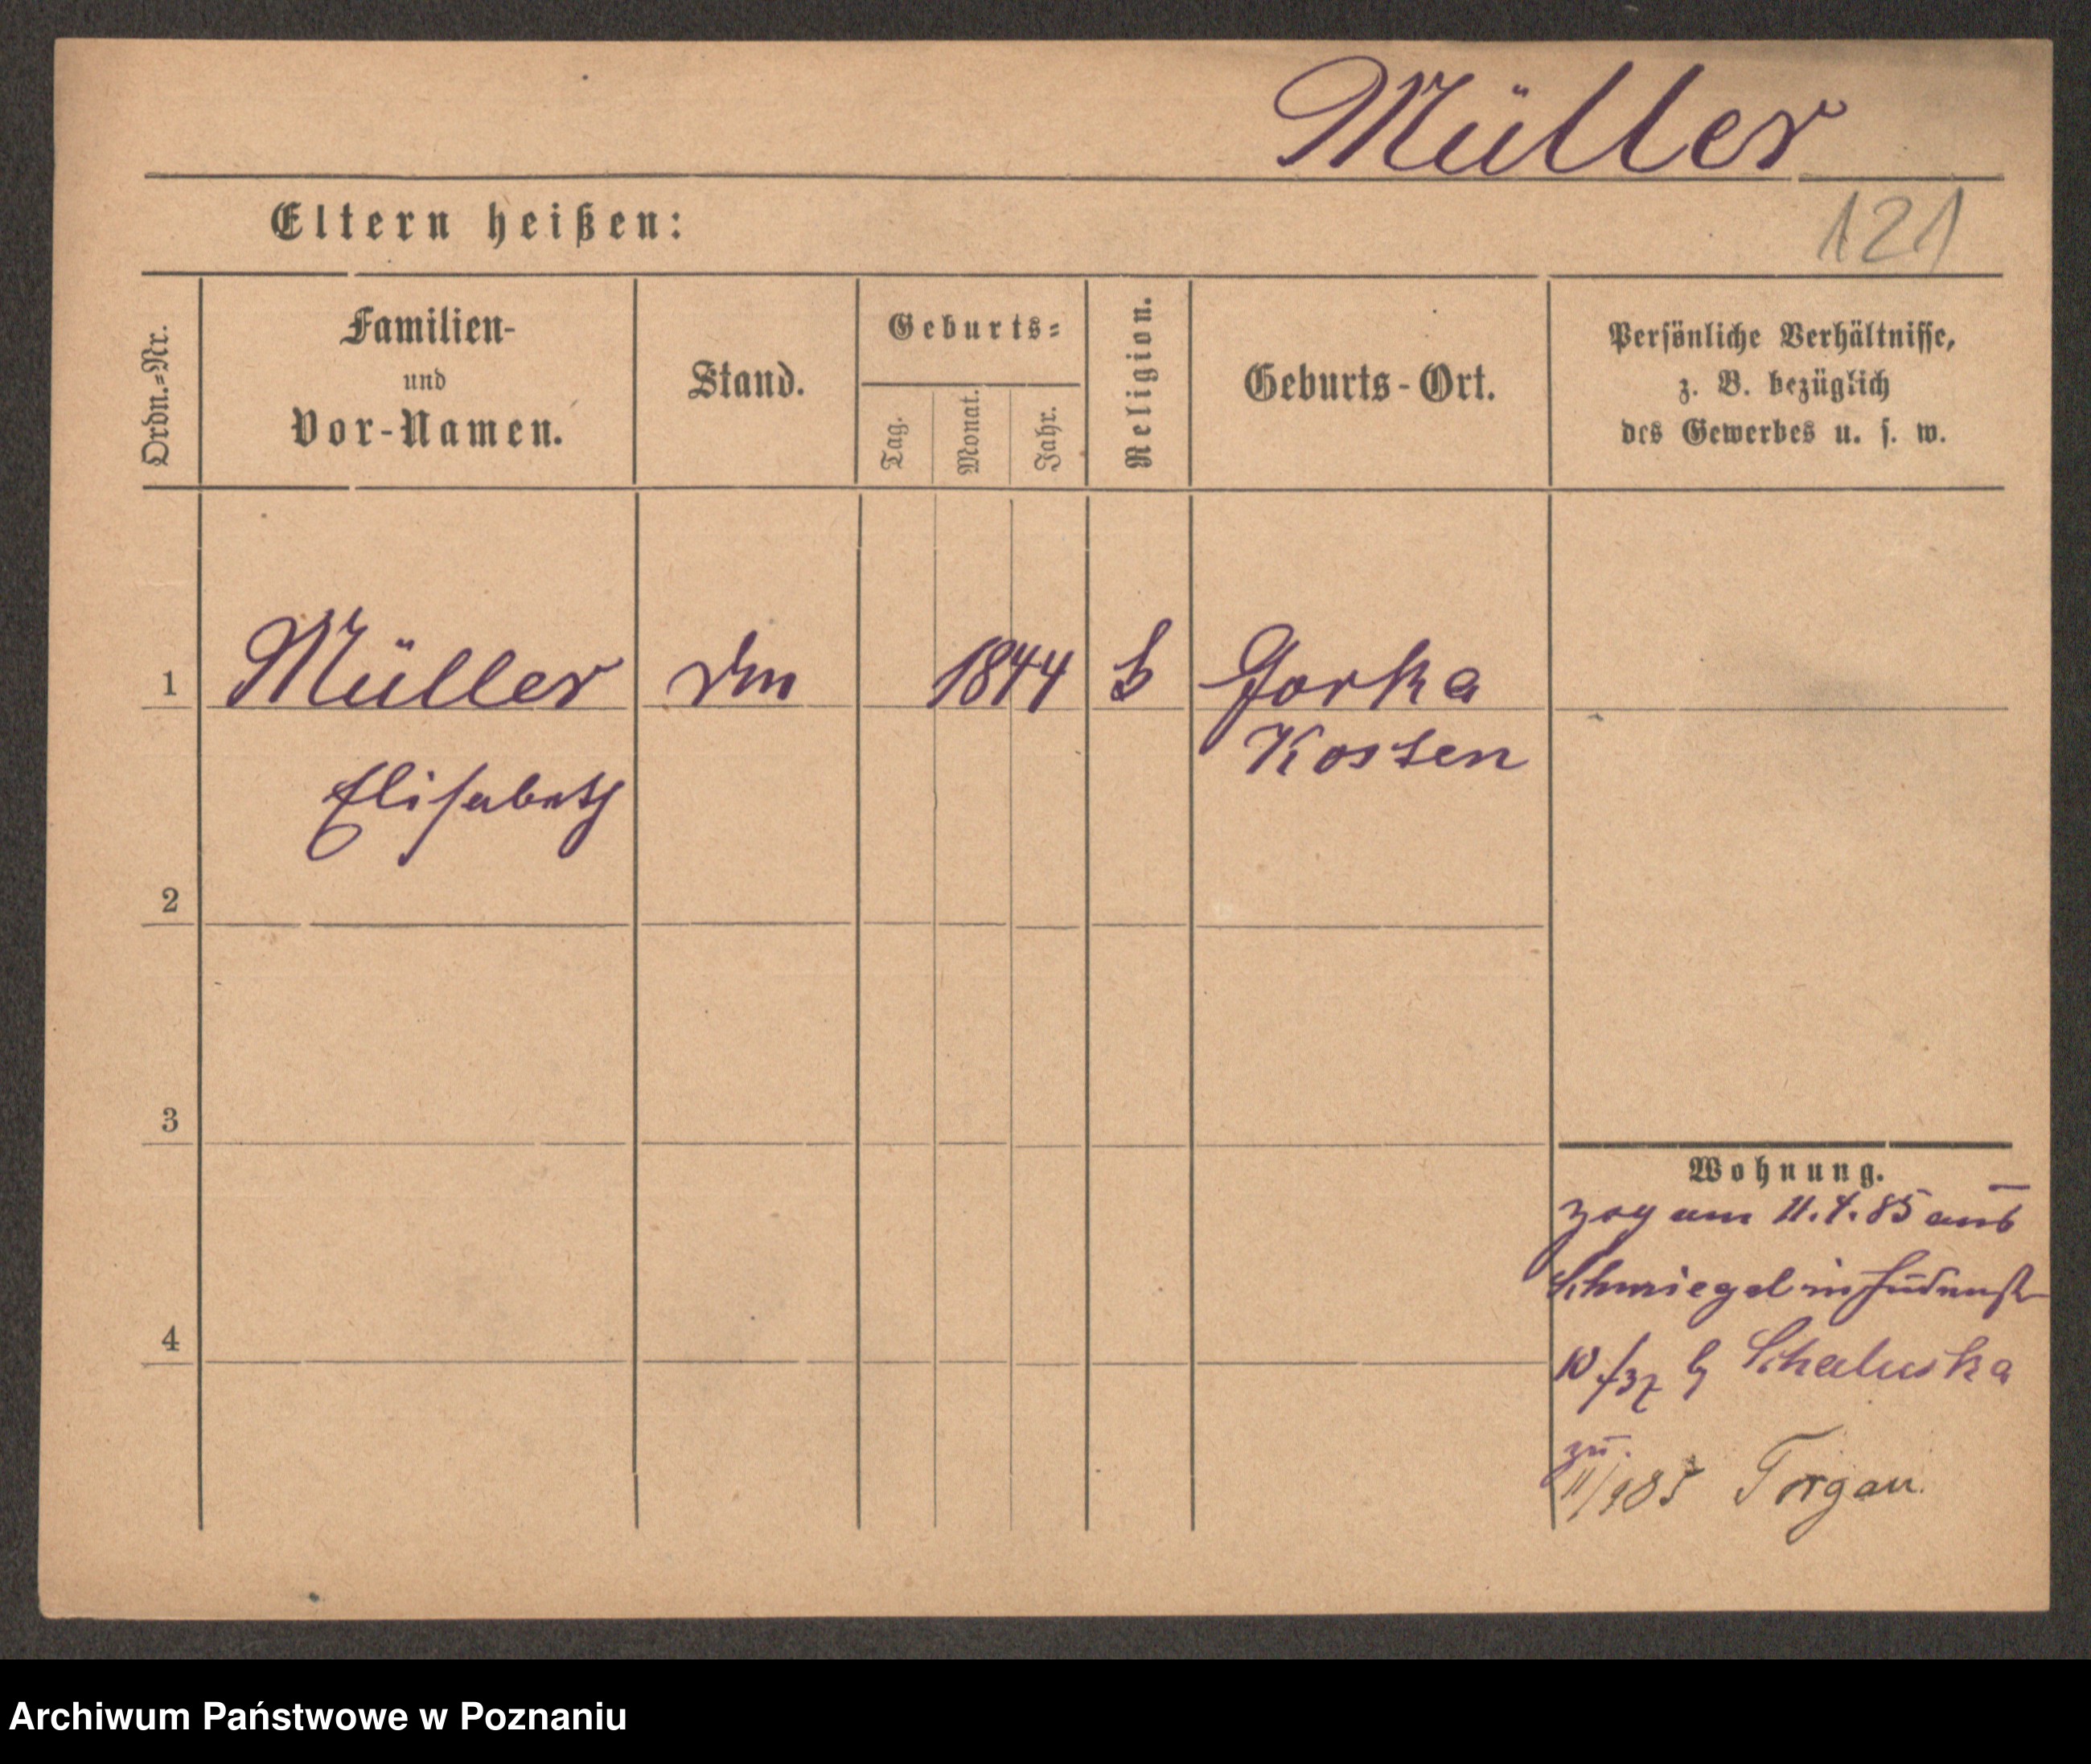 Müller
Eltern heißen:
121
Ordn.=Nr.
Familien-
und
Vor-Namen.
Stand.
Geburts=
Tag.
Monat.
Jahr.
Religion.
Geburts-Ort.
Persönliche Verhältnisse,
z. B. bezüglich
des Gewerbes u. s. w.
1
Müller
1844
Gorka
Kosten
Elisabeth
2
3
4
Wohnung.
zog am 11.4.85 aus
Schmiegel in Judenstr
10 Schaluska
zu.
Torgau.
Archiwum Państwowe w Poznaniu